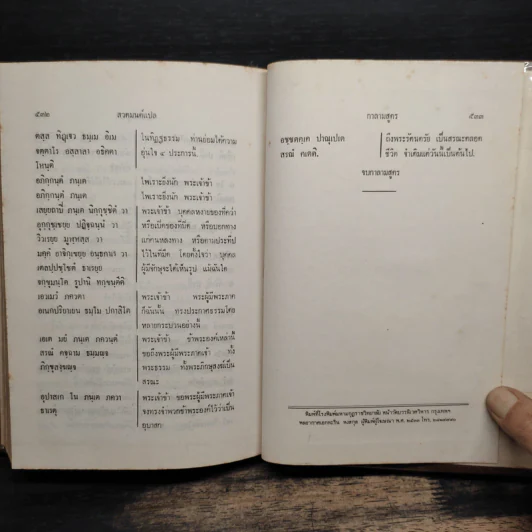 ๕๓๒ สวดมนต์แปล
ตสฺส ทิฏฺเฐว ธมฺเม อิเม
จตฺตาโร อสฺสาสา อธิคตา
โหนฺติ
ในทิฏฐธรรม ท่านย่อมได้ความ
อุ่นใจ ๔ ประการนี้.
อภิกฺกนฺตํ ภนฺเต
อภิกฺกนฺตํ ภนฺเต
ไพเราะยิ่งนัก พระเจ้าข้า
ไพเราะยิ่งนัก พระเจ้าข้า
เสยฺยถาปิ ภนฺเต นิกฺกุชฺชิตํ วา
อุกฺกุชฺเชยฺย ปฏิจฺฉนฺนํ วา
วิวเรยฺย มูฬฺหสฺส วา
มคฺคํ อาจิกฺเขยฺย อนฺธกาเร วา
เตลปฺปชฺโชตํ ธาเรยฺย
จกฺขุมนฺโต รูปานิ ทกฺขนฺตีติ
พระเจ้าข้า บุคคลหงายของที่คว่ำ
หรือเปิดของที่ปิด หรือบอกทาง
แก่คนหลงทาง หรือตามประทีป
ไว้ในที่มืด โดยตั้งใจว่า บุคคล
ผู้มีจักษุจะได้เห็นรูป แม้ฉันใด
เอวเมวํ ภควตา
อเนกปริยาเยน ธมฺโม ปกาสิโต
พระเจ้าข้า พระผู้มีพระภาค
ก็ฉันนั้น ทรงประกาศธรรมโดย
หลายกระบวนอย่างนี้
เอเต มยํ ภนฺเต ภควนฺตํ
สรณํ คจฺฉาม ธมฺมญฺจ
ภิกฺขุสงฺฆญฺจ
พระเจ้าข้า ข้าพระองค์เหล่านี้
ขอถึงพระผู้มีพระภาคเจ้า ทั้ง
พระธรรม ทั้งพระภิกษุสงฆ์เป็น
สรณะ
อุปาสเก โน ภนฺเต ภควา
ธาเรตุ
พระเจ้าข้า ขอพระผู้มีพระภาค
จงทรงจำพวกข้าพระองค์ไว้ว่าเป็น
อุบาสก
กาลามสูตร ๕๓๓
อชฺชตคฺเค ปาณุเปเต
สรณํ คเตติ.
ถึงพระรัตนตรัย เป็นสรณะตลอด
ชีวิต จำเดิมแต่วันนี้เป็นต้นไป.
จบกาลามสูตร
พิมพ์ที่โรงพิมพ์มหามกุฏราชวิทยาลัย หน้าวัดบวรนิเวศวิหาร กรุงเทพฯ